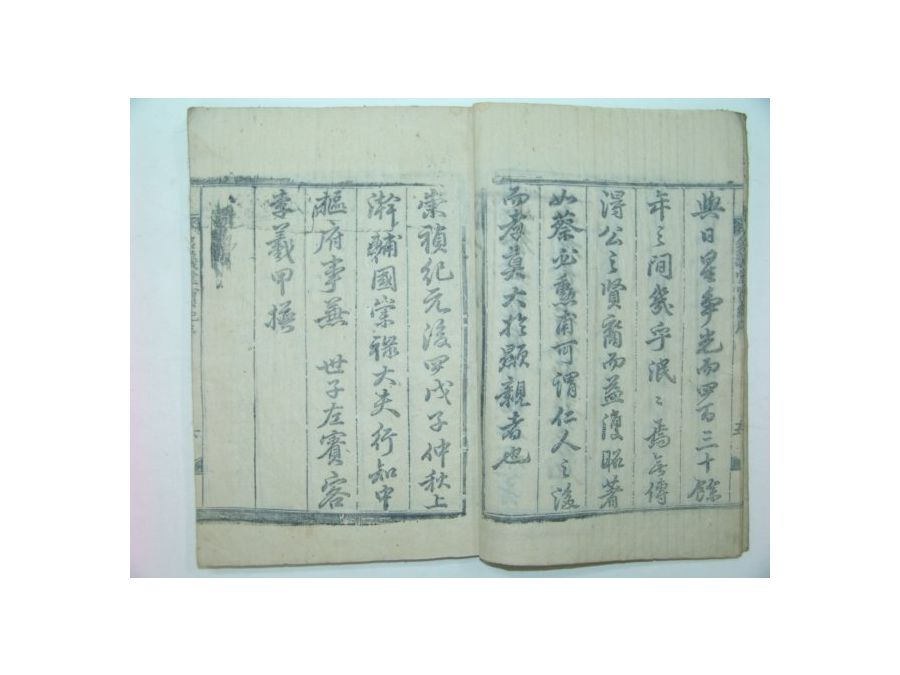 與日星爭光而四百三十餘
年之間幾乎泯〻焉無傳
得公之賢裔而益復昭著
如蔡必勳甫可謂仁人之後
而孝莫大於顯親者也
崇禎紀元後四戊子仲秋上
澣輔國崇祿大夫行知中
樞府事兼 世子左賓客
李羲甲撰
五